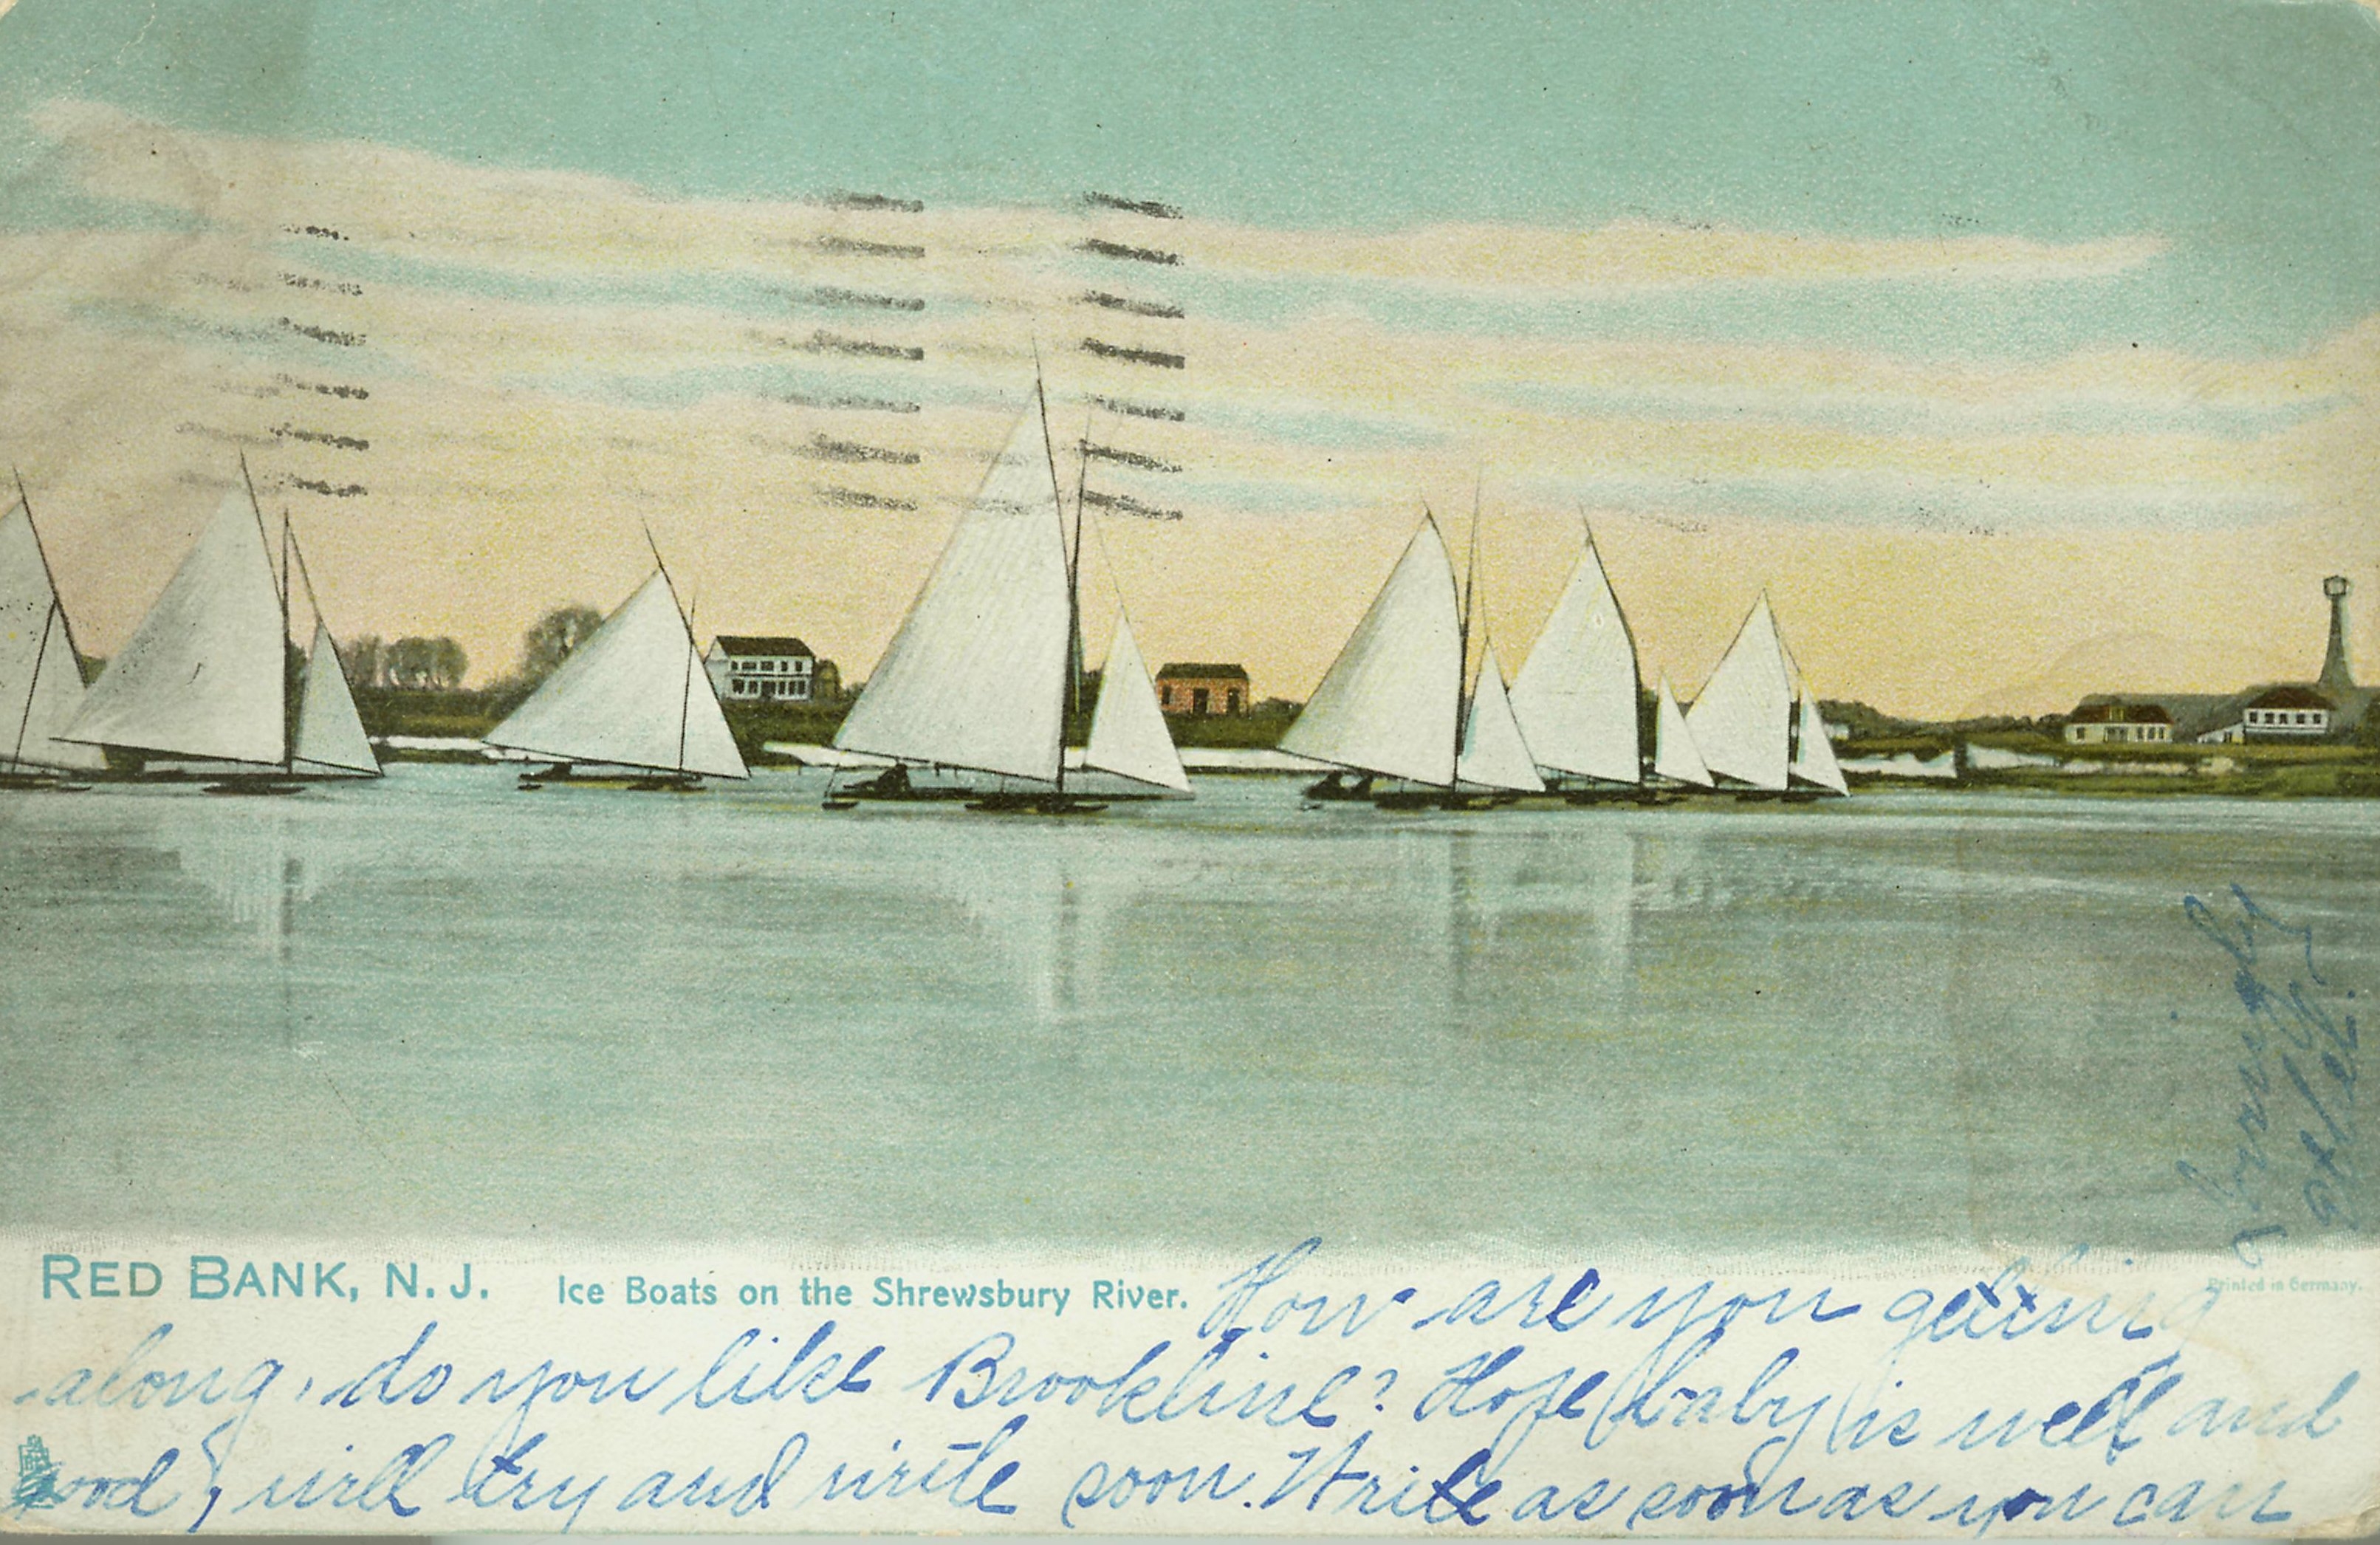 RED BANK, N. J. Ice Boats on the Shrewsbury River. How are you getting
Printed in Germany.
along, do you like Brookline? Hope baby is well and
good, will try and write soon. Write as soon as you can
Lovingly